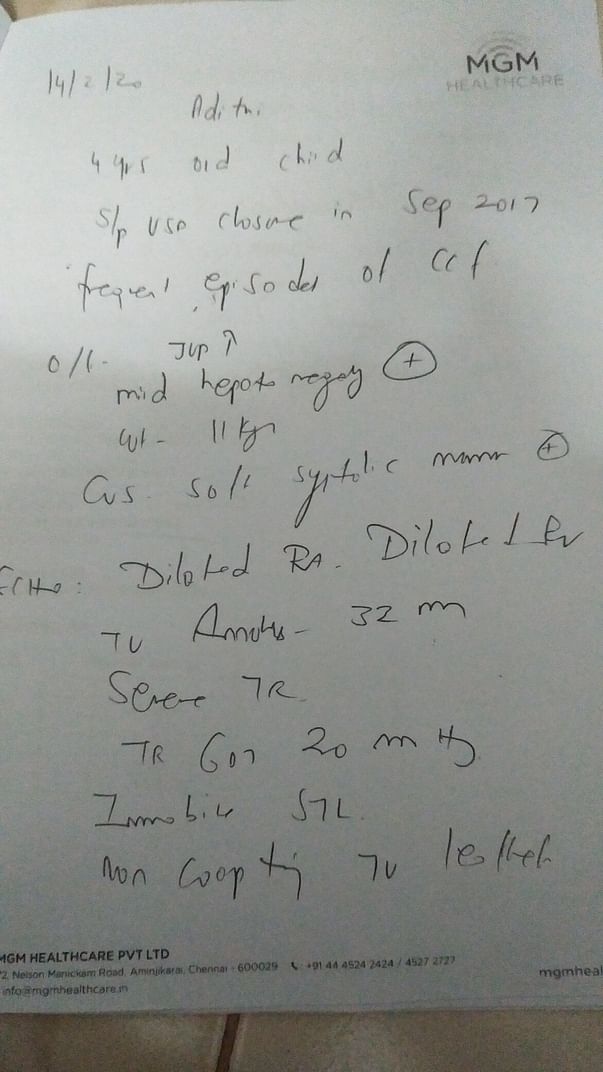 MGM
HEALTHCARE
14/2/20
Adithi
4 yrs old child
S/p VSD closure in Sep 2017
frequent episodes of CCF
O/E - JVP ↑
mild hepatomegaly (+)
wt - 11 kg
CVS. soft systolic murmur (+)
ECHO: Dilated RA. Dilated RV
TV Annulus - 32 mm
Severe TR
TR Gr 20 mm Hg
Immobile STL.
Non coapting TV leaflet
MGM HEALTHCARE PVT LTD
72, Nelson Manickam Road, Aminjikarai, Chennai - 600029 +91 44 4524 2424 / 4527 2727
info@mgmhealthcare.in
mgmheal